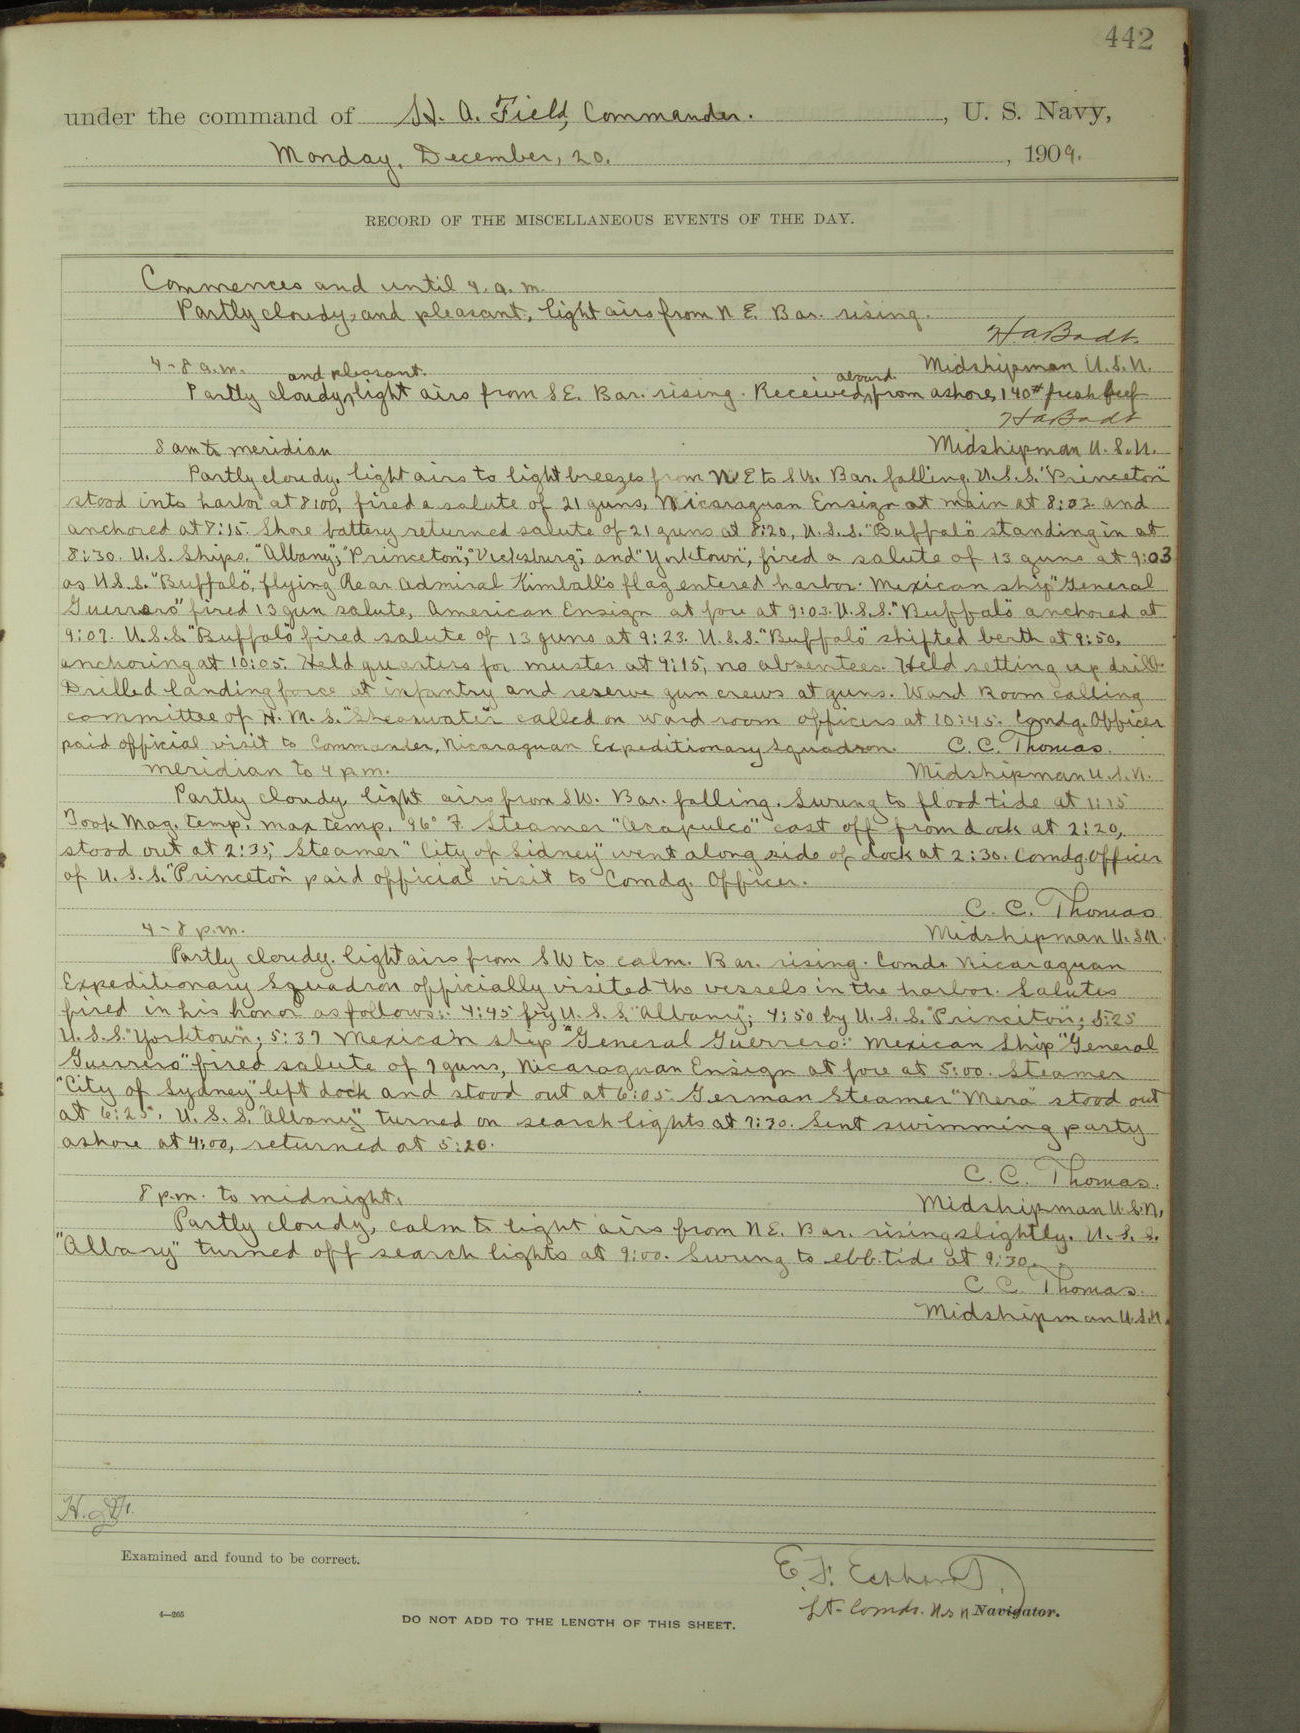 442
under the command of H. A. Field, Commander. , U. S. Navy,
Monday, December, 20. , 1909.
RECORD OF THE MISCELLANEOUS EVENTS OF THE DAY.
Commences and until 4 a. m.
Partly cloudy, and pleasant, light airs from N E. Bar. rising.
H a Badt.
4 - 8 a.m. Midshipman U.S.N.
and pleasant. aboard.
Partly cloudy, light airs from S E. Bar. rising. Received from ashore, 140# fresh beef
H a Badt
8 am to meridian Midshipman U.S.N.
Partly cloudy, light airs to light breezes from N E to S W. Bar. falling. U.S.S. "Princeton"
stood into harbor at 8:00, fired a salute of 21 guns, Nicaraguan Ensign at main at 8:03 and
anchored at 8:15. Shore battery returned salute of 21 guns at 8:20, U.S.S. "Buffalo" standing in at
8:30. U.S. Ships, "Albany", "Princeton", "Vicksburg", and "Yorktown", fired a salute of 13 guns at 9:03
as U.S.S. "Buffalo", flying Rear Admiral Kimball's flag entered harbor. Mexican ship "General
Guerrero" fired 13 gun salute, American Ensign at fore at 9:03. U.S.S. "Buffalo" anchored at
9:07. U.S.S. "Buffalo" fired salute of 13 guns at 9:23. U.S.S. "Buffalo" shifted berth at 9:50,
anchoring at 10:05. Held quarters for muster at 9:15, no absentees. Held setting up drill.
Drilled landing force at infantry and reserve gun crews at guns. Ward Room calling
committee of H. M. S. "Shearwater" called on ward room officers at 10:45. Comdg. Officer
paid official visit to Commander, Nicaraguan Expeditionary Squadron. C. C. Thomas.
meridian to 4 p.m. Midshipman U.S.N.
Partly cloudy, light airs from SW. Bar. falling. Swung to flood tide at 1:15
Took Mag. temp. max temp. 96° F. Steamer "Acapulco" cast off from dock at 2:20,
stood out at 2:35, Steamer "City of Sidney" went along side of dock at 2:30. Comdg. Officer
of U. S. S. "Princeton" paid official visit to Comdg. Officer.
C. C. Thomas
4 - 8 p.m. Midshipman U.S.N.
Partly cloudy. light airs from SW to calm. Bar. rising. Comdr. Nicaraguan
Expeditionary Squadron officially visited the vessels in the harbor. Salutes
fired in his honor as follows: 4:45 by U. S. S. "Albany"; 4:50 by U. S. S. "Princeton"; 5:25
U.S.S. "Yorktown"; 5:37 Mexican ship "General Guerrero." Mexican Ship "General
Guerrero" fired salute of 7 guns, Nicaraguan Ensign at fore at 5:00. Steamer
"City of Sydney" left dock and stood out at 6:05. German Steamer "Mera" stood out
at 6:25. U. S. S. "Albany" turned on search lights at 7:30. Sent swimming party
ashore at 4:00, returned at 5:20.
C. C. Thomas.
8 p.m. to midnight. Midshipman U.S.N.
Partly cloudy, calm to light airs from N E. Bar. rising slightly. U. S. S.
"Albany" turned off search lights at 9:00. Swung to ebb tide at 9:30.
C C. Thomas.
Midshipman U.S.N.
Examined and found to be correct.
E. F. Eckhardt.
Lt- Comdr. U S N Navigator.
4—265
DO NOT ADD TO THE LENGTH OF THIS SHEET.